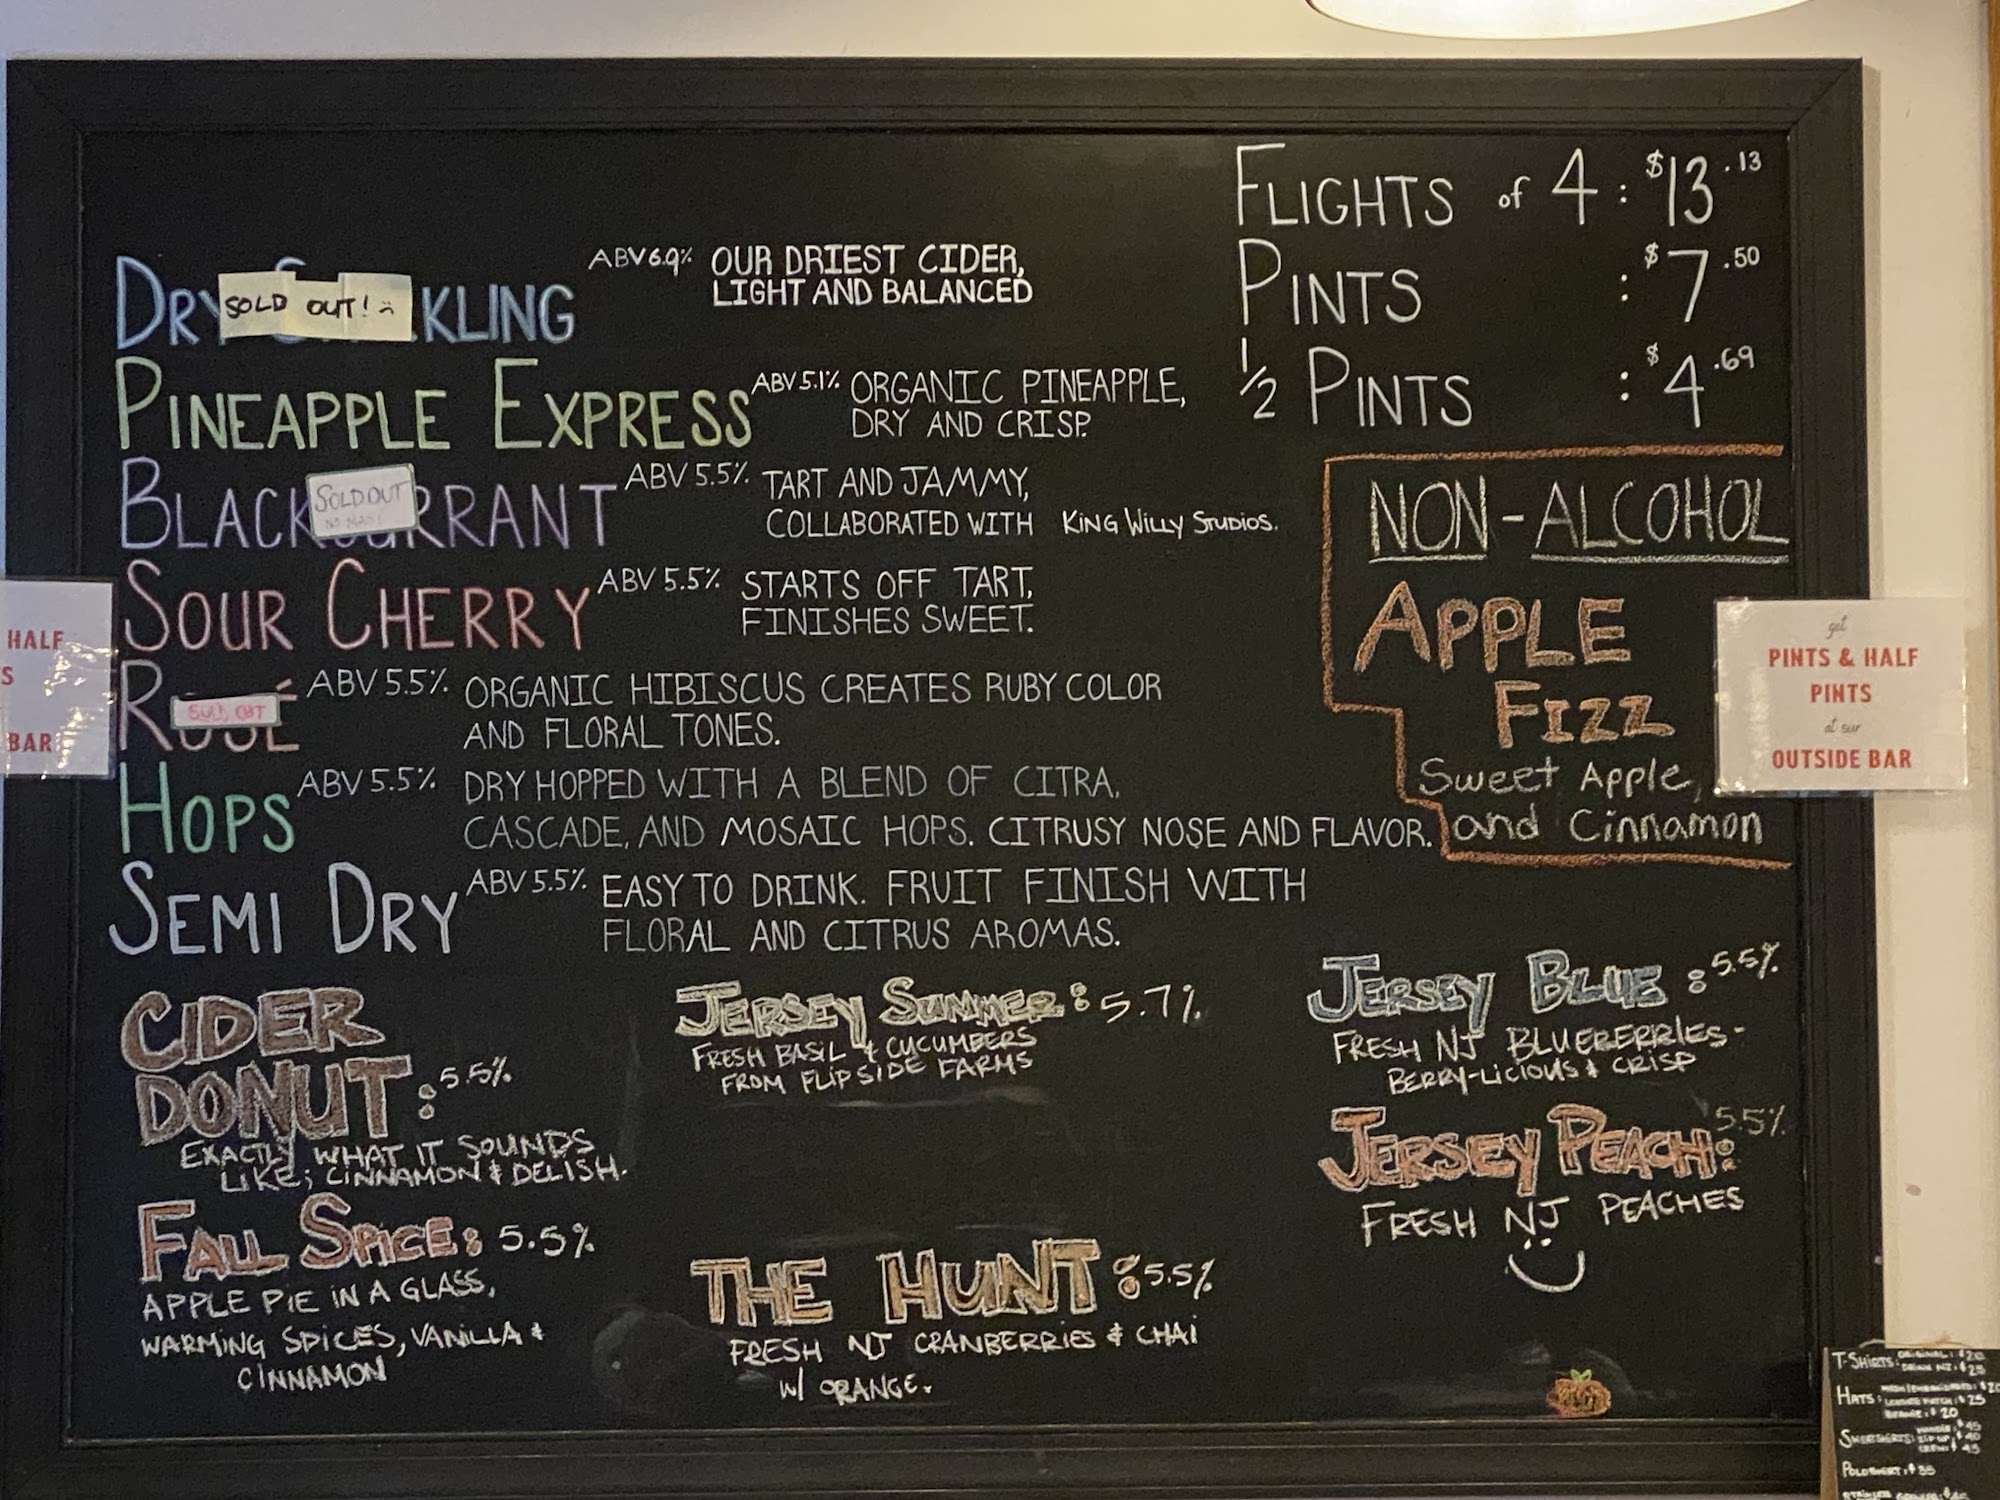 FLIGHTS of 4 : $13.13
PINTS : $7.50
1/2 PINTS : $4.69
DRY KLING ABV 6.9% OUR DRIEST CIDER,
LIGHT AND BALANCED
SOLD OUT!
PINEAPPLE EXPRESS ABV 5.1% ORGANIC PINEAPPLE,
DRY AND CRISP.
BLACKCURRANT ABV 5.5% TART AND JAMMY,
COLLABORATED WITH KING WILLY STUDIOS.
SOLD OUT
SOUR CHERRY ABV 5.5% STARTS OFF TART,
FINISHES SWEET.
ROSÉ ABV 5.5% ORGANIC HIBISCUS CREATES RUBY COLOR
AND FLORAL TONES.
SOLD OUT
HOPS ABV 5.5% DRY HOPPED WITH A BLEND OF CITRA,
CASCADE, AND MOSAIC HOPS. CITRUSY NOSE AND FLAVOR.
SEMI DRY ABV 5.5% EASY TO DRINK. FRUIT FINISH WITH
FLORAL AND CITRUS AROMAS.
NON-ALCOHOL
APPLE
FIZZ
Sweet Apple,
and Cinnamon
CIDER
DONUT : 5.5%
EXACTLY WHAT IT SOUNDS
LIKE; CINNAMON & DELISH.
FALL SPICE: 5.5%
APPLE PIE IN A GLASS,
WARMING SPICES, VANILLA &
CINNAMON
JERSEY SUMMER: 5.7%
FRESH BASIL & CUCUMBERS
FROM FLIPSIDE FARMS
THE HUNT: 5.5%
FRESH NJ CRANBERRIES & CHAI
W/ ORANGE.
JERSEY BLUE: 5.5%
FRESH NJ BLUEBERRIES-
BERRY-LICIOUS & CRISP
JERSEY PEACH: 5.5%
FRESH NJ PEACHES
HALF
S
BAR
get
PINTS & HALF
PINTS
at our
OUTSIDE BAR
T-SHIRTS: ORIGINAL: $20
DRINK NJ: $25
HATS:
LEATHER PATCH: $25
BEANIE: $20
SWEATSHIRTS:
ZIP UP: $40
CREW: $45
POLO SHIRT: $35